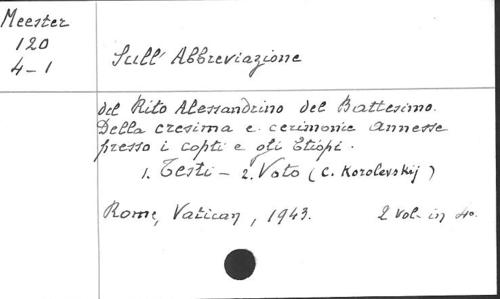 Meester
120
4-1
Sull' Abbreviazione
del Rito Alessandrino del Battesimo.
Della cresima e cerimonie annesse
presso i copti e gli Etiopi.
1. Testi - 2. Voto (C. Korolevskij)
Rome, Vatican, 1943. 2 vol. in 4o.